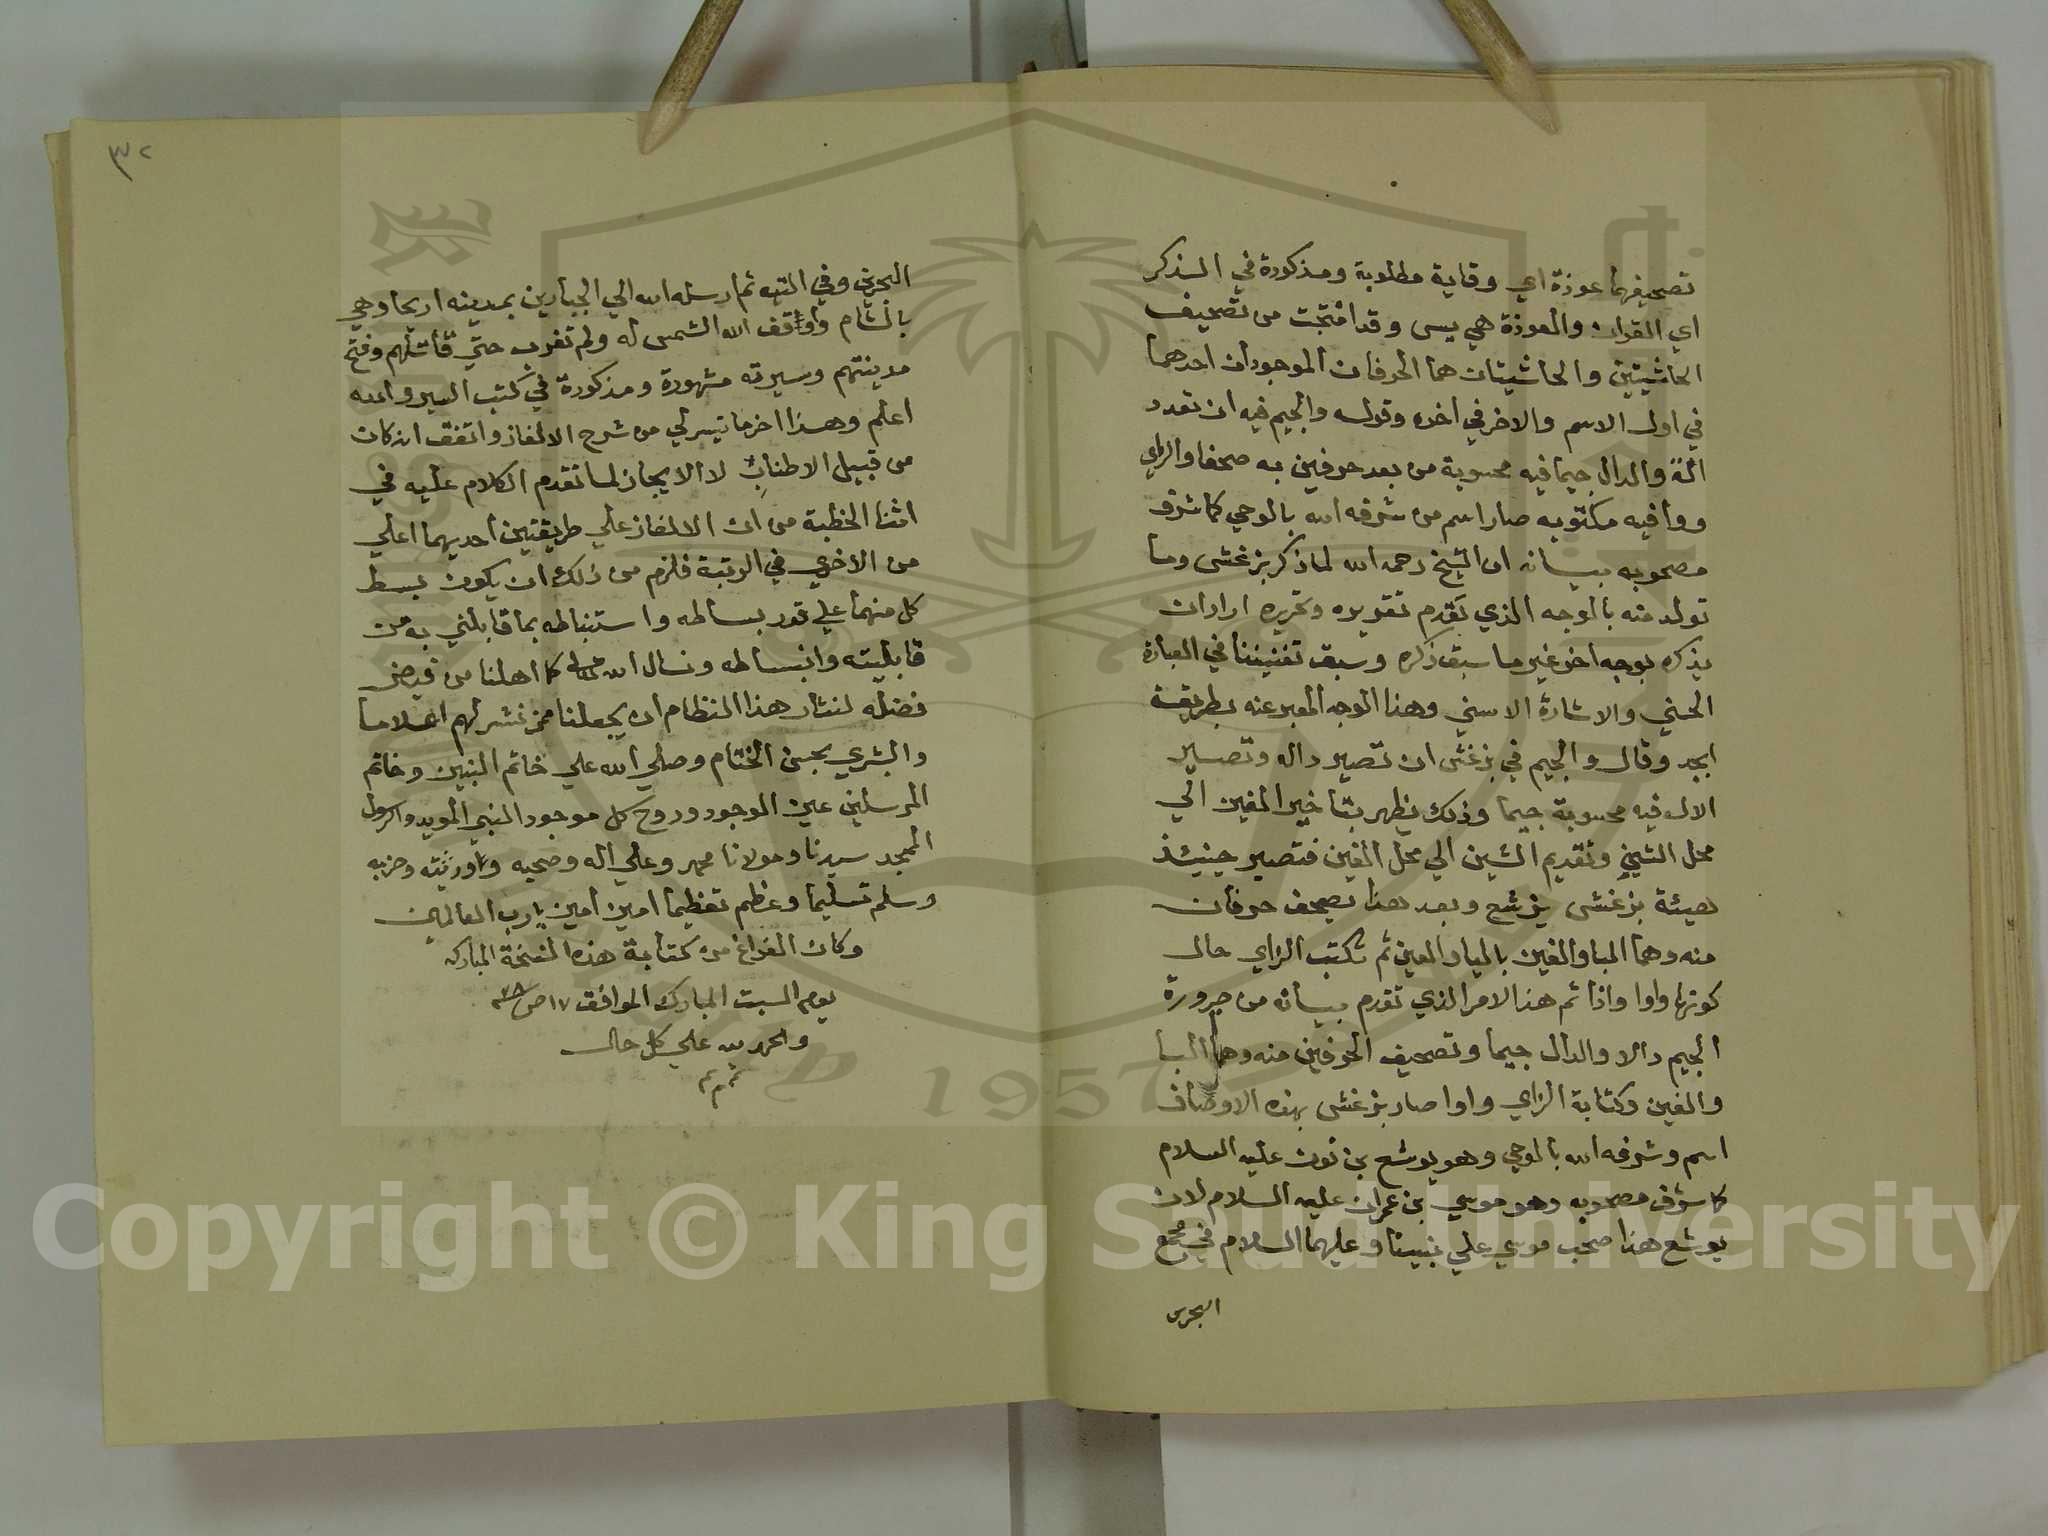 تصحيفهما عوذة اي وقاية مطلوبة ومذكورة في الذكر
اي القران والعوذة هي يس وقد افتتحت من تصحيف
الحاشيتين والحاشيتان هما الحرفان الموجودان احدهما
في اول الاسم والاخر في اخره وقوله والجيم فيه ان تعدد
الة والدال جيما فيه محسوبة من بعد حرفين به صحفا والزاي
ووا فيه مكتوبه صار اسم من شرفه الله بالوحي كما شرف
مصحوبه بيانه ان الشيخ رحمه الله لما ذكر بزغش وما
تولد منه بالوجه الذي تقدم تقويره وتحريره اراد ان
يذكره بوجه اخر غير ما سبق ذكره وسبق تفنيننا في العبارة
الحسني والاشارة الاسني وهذا الوجه المعبر عنه بطريقة
ابجد وقال والجيم في بزغش ان تصير داله وتصير
الال فيه محسوبة جيما وذلك يظهر بتاخير الغين الي
محل الشين وتقديم الشين الي محل الغين فتصير حينئذ
هيئة بزغش بزشغ وبعد هذا تصحف حرفان
منه وهما البا والغين باليا والعين ثم تكتب الزاي حال
كونها واوا واذا تم هذا الامر الذي تقدم بيانه من صيرورة
الجيم دالا والدال جيما وتصحيف الحرفين منه وهما البا
والغين وكتابة الزاي واوا صار بزغش بهذه الاوصاف
اسم وشرفه الله بالوحي وهو يوشع بن نون عليه السلام
كما شرف مصحوبه وهو موسي بن عمران عليه السلام لان
يوشع هذا صحب موسي علي نبينا وعليهما السلام في مجمع
البحرين
٣٢
البحرين وفي التيه ثم ارسله الله الي الجبارين بمدينه اريحا وهي
بالشام واوقف الله الشمس له ولم تغرب حتي قاتلهم وفتح
مدينتهم وسيرته مشهورة ومذكورة في كتب السير والله
اعلم وهذا اخر ما تيسر لي من شرح الالغاز واتفق انه كان
من قبيل الاطناب لا الايجاز لما تقدم الكلام عليه في
اثنا الخطبة من ان الالغاز علي طريقتين احديهما اعلي
من الاخري في الرتبة فلزم من ذلك ان يكون بسط
كل منهما علي قدر بساطه واستنباطه بما قابلني به من
قابليته وانبساطه ونسال الله كما اهلنا من فيض
فضله لنثار هذا النظام ان يجعلنا ممن نشر لهم اعلاما
والبشري بحسن الختام وصلي الله علي خاتم النبين وخاتم
المرسلين عين الوجود وروح كل موجود النبي المويد والرسول
الممجد سيدنا ومولانا محمد وعلي اله وصحبه وورثته وحزبه
وسلم تسليما وعظم تعظيما امين امين يارب العالمين
وكان الفراغ من كتابة هذه النسخة المباركه
يوم السبت المبارك الموافق ١٧ ص
والحمد لله علي كل حال
تمم
1957
Copyright © King Saud University